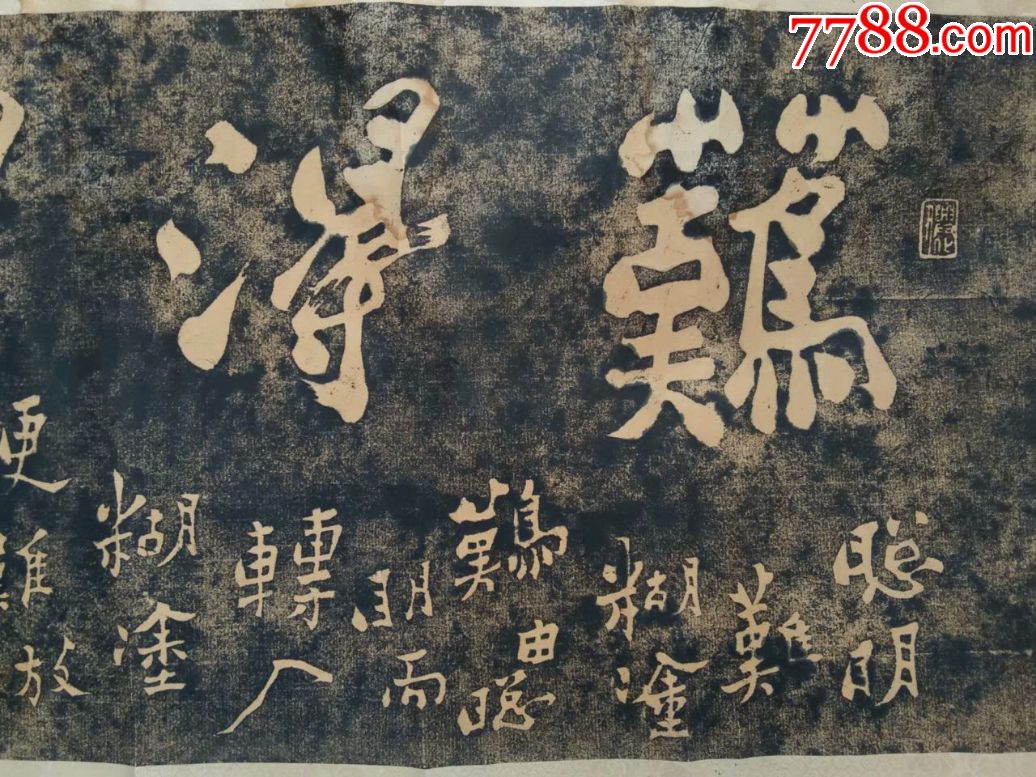 7788.com
難得
聰明
難
糊塗
難由聰
明而
轉入
糊塗
更難放